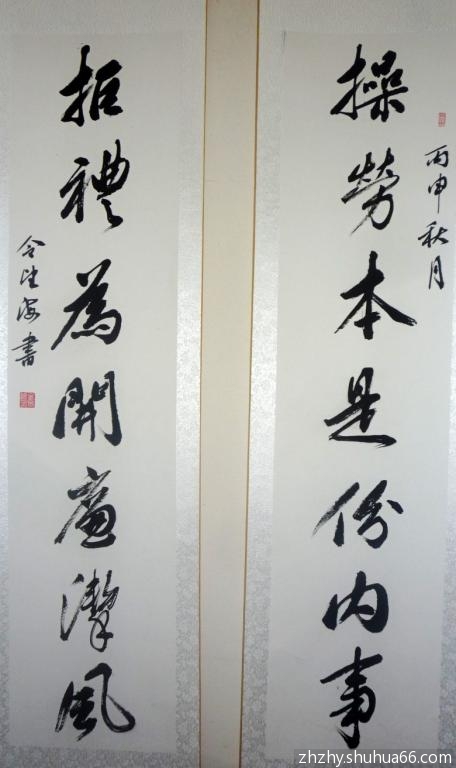 丙申秋月
操勞本是份内事
拒禮為開廉潔風
令書
zhzhy.shuhua66.com